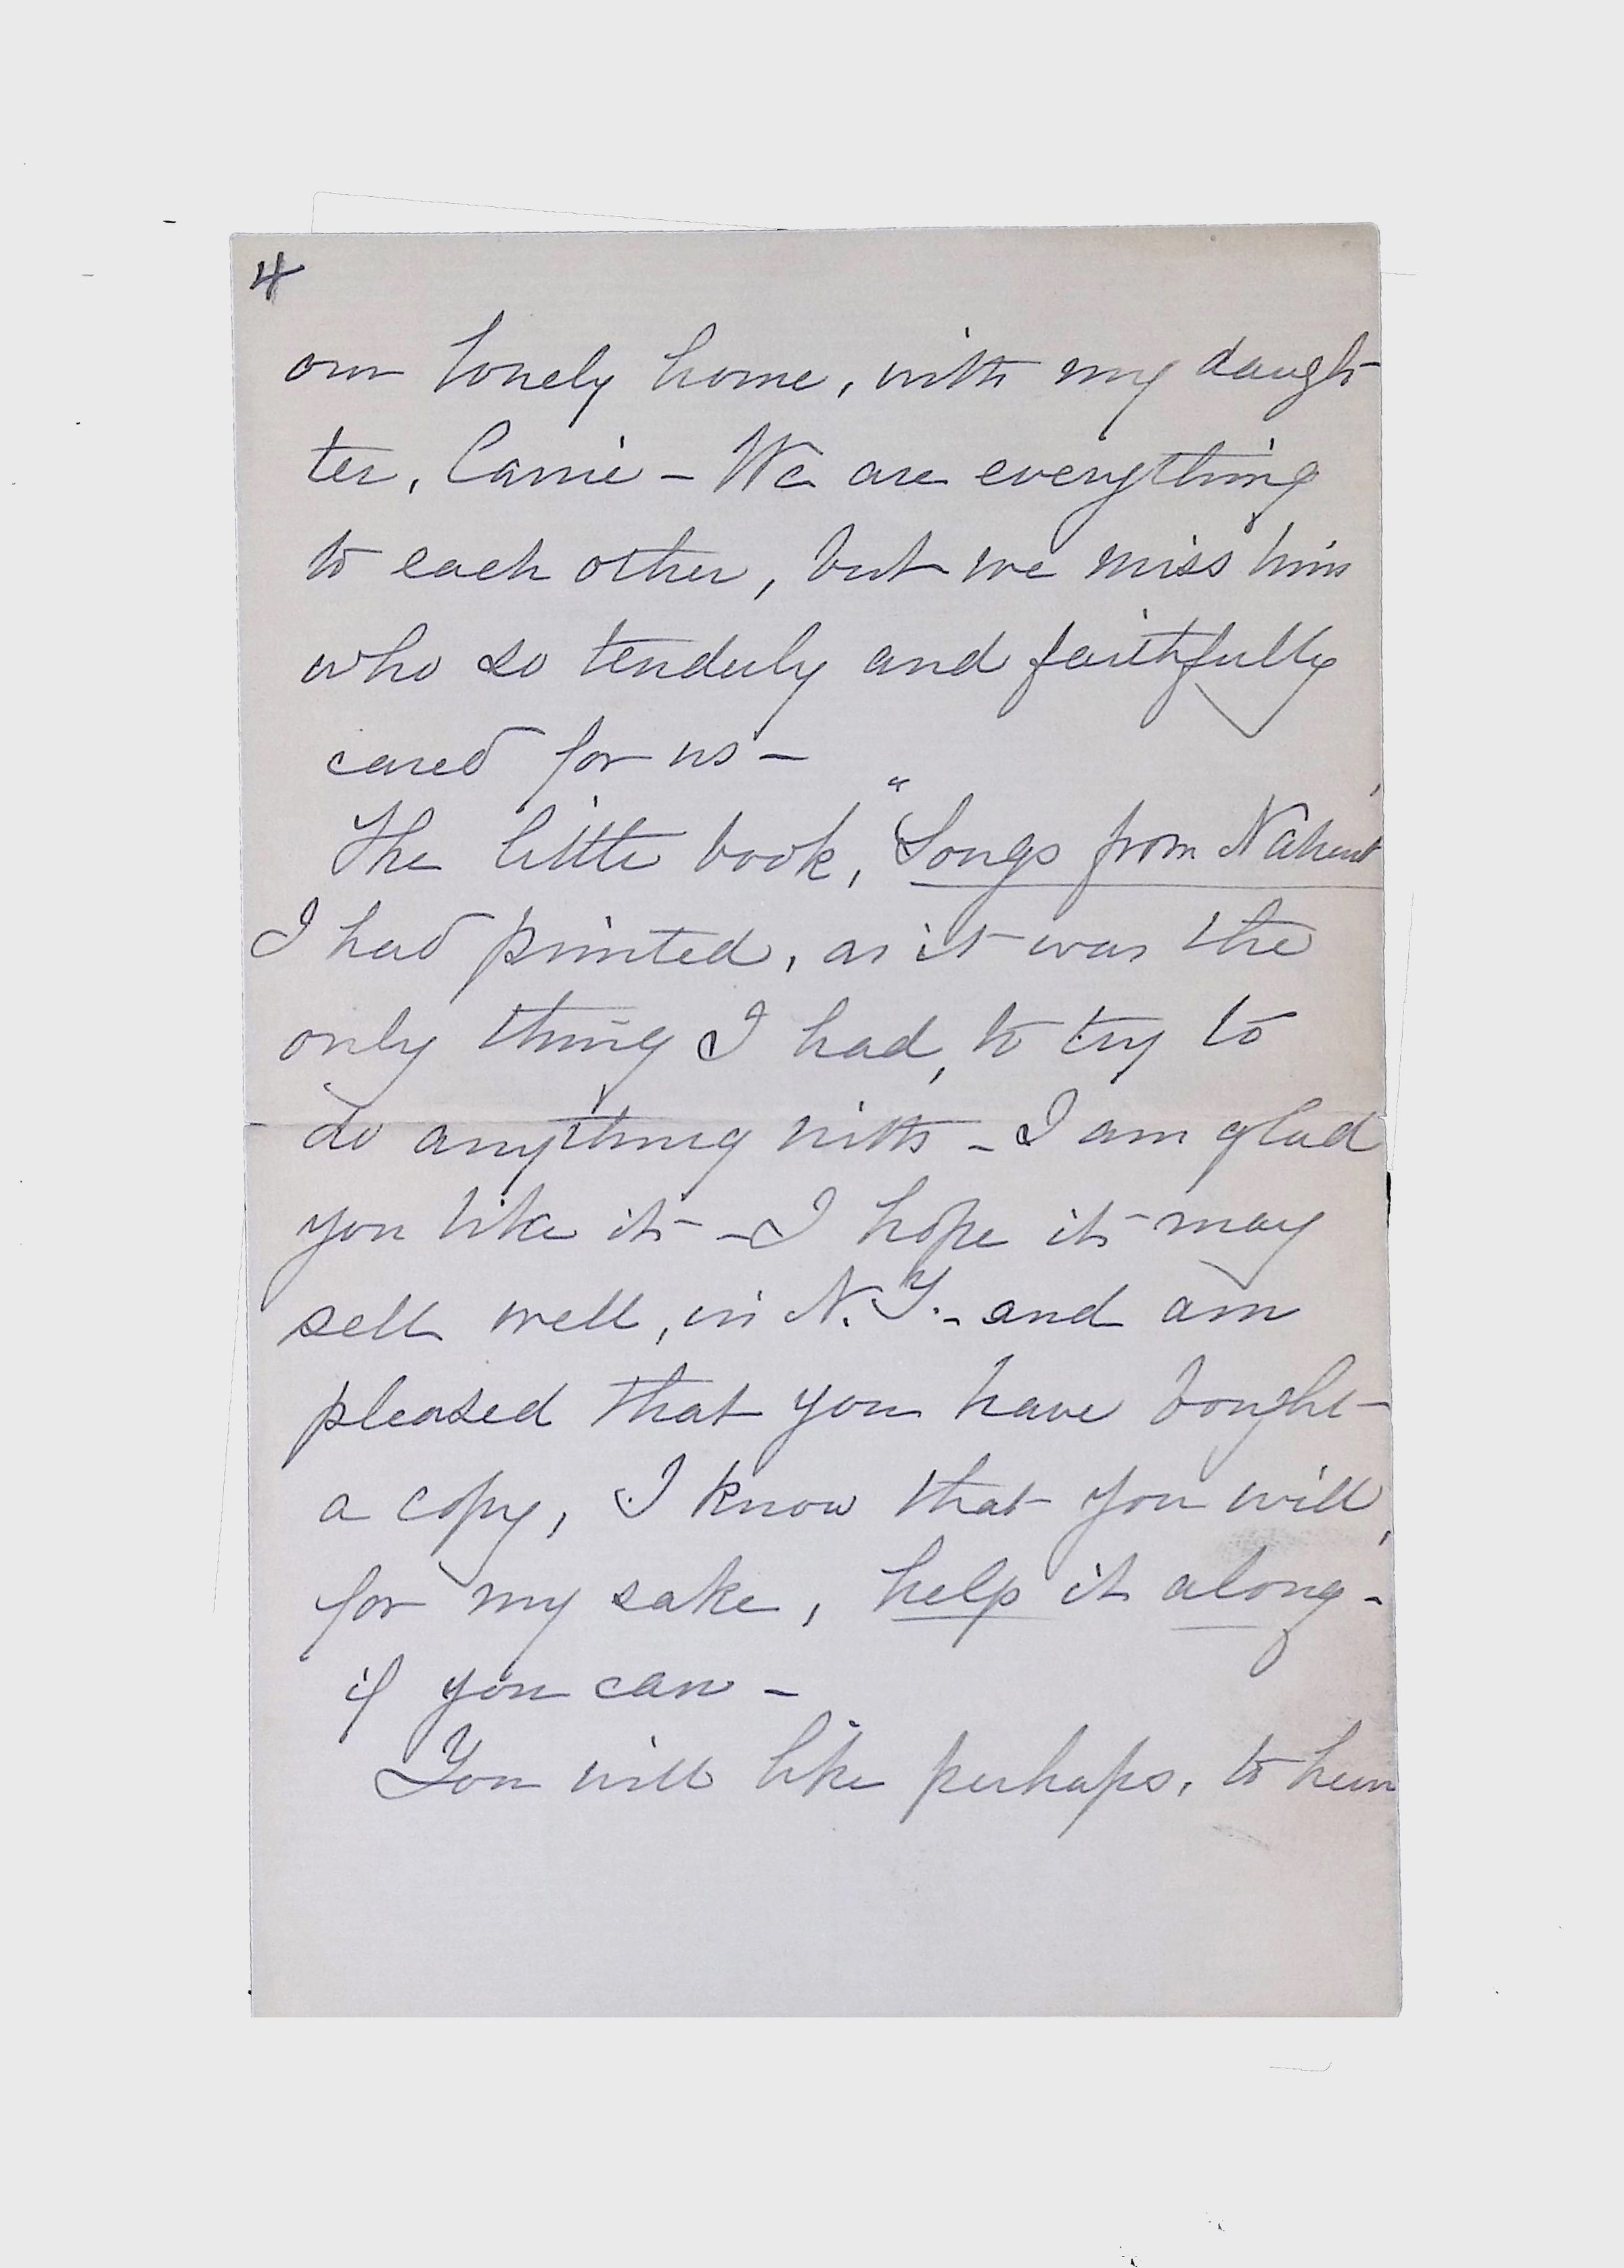 4
our lonely home, with my daugh-
ter, Carrie - We are everything
to each other, but we miss him
who so tenderly and faithfully
cared for us -
The little book, "Songs from Nahant
I had printed, as it was the
only thing I had, to try to
do anything with - I am glad
you like it - I hope it may
sell well, in N.Y. - and am
pleased that you have bought
a copy, I know that you will,
for my sake, help it along -
if you can -
You will like perhaps, to hear